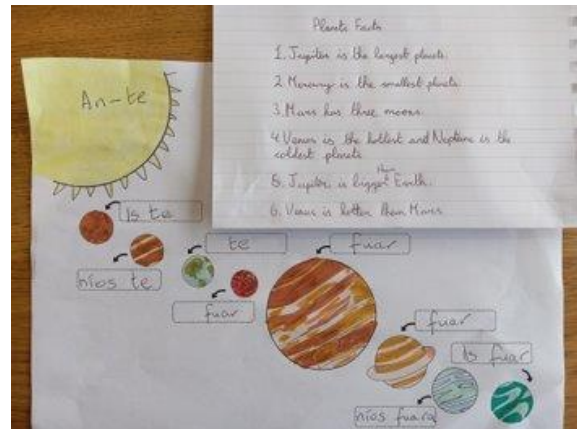 Planets Facts
1. Jupiter is the largest planets.
2 Mercury is the smallest planets.
3. Mars has three moons.
4. Venus is the hottest and Neptune is the
coldest planets
5. Jupiter is bigger than Earth.
6. Venus is hotter than Mars
An-te
Is te
níos te
te
fuar
fuar
fuar
Is fuar
níos fuara